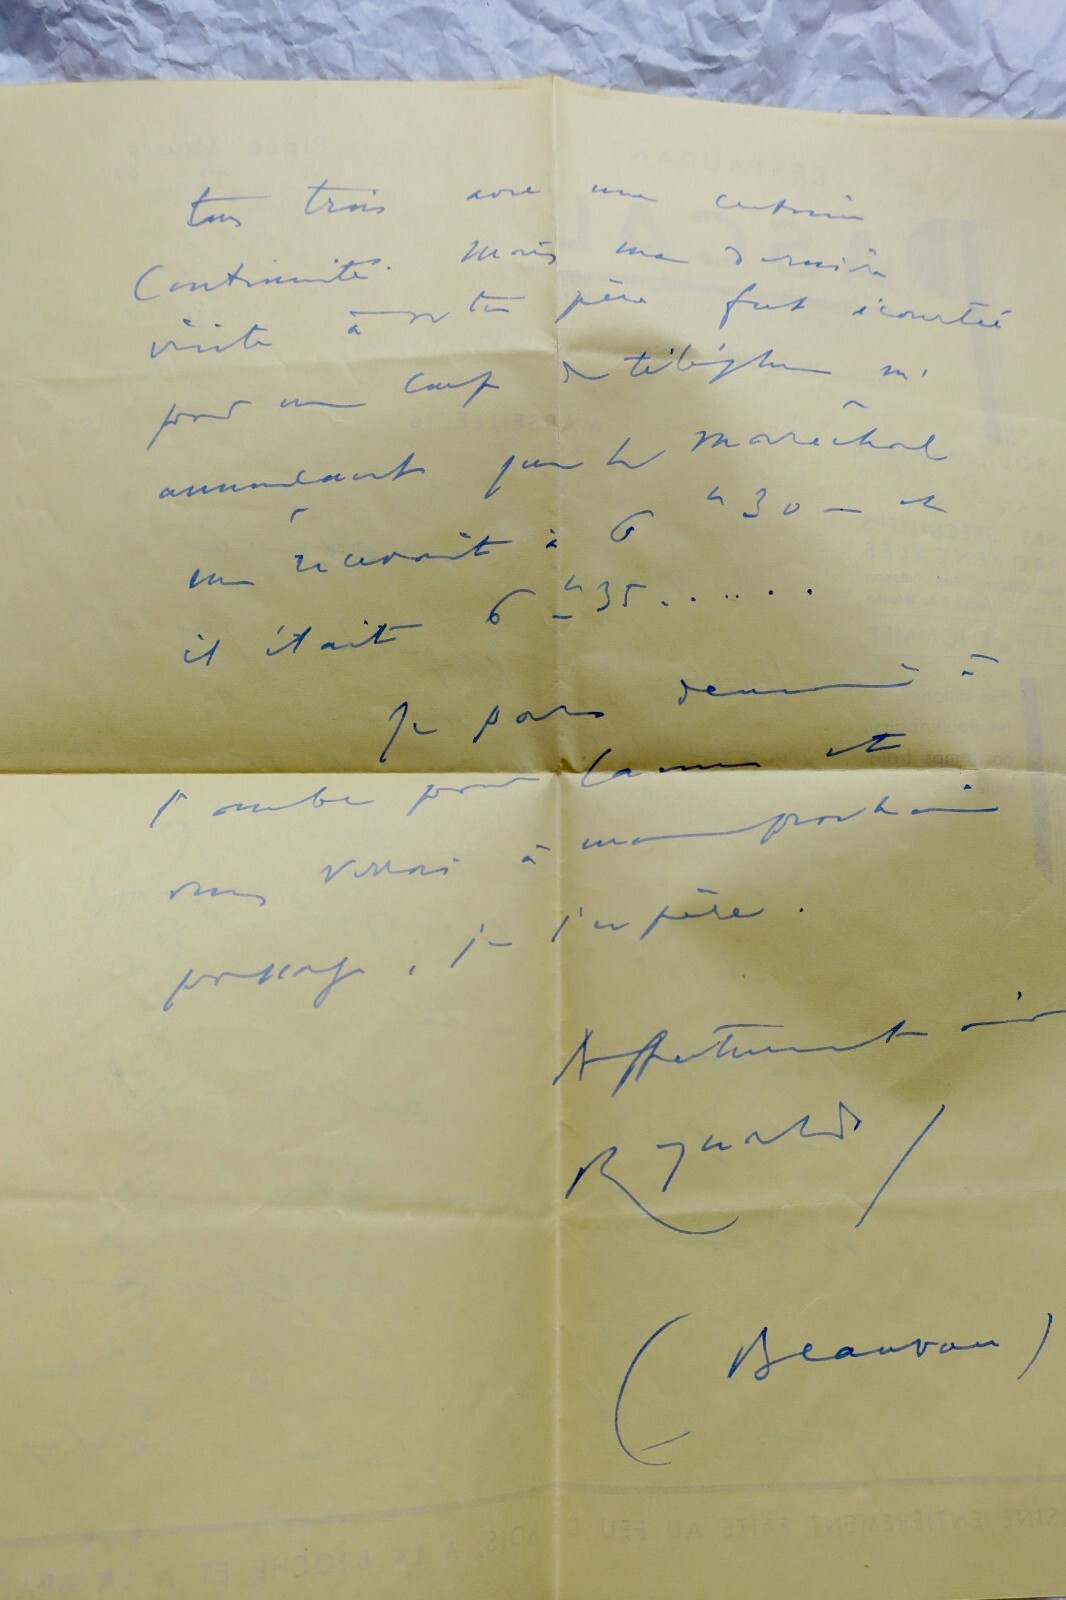 tous trois avec une certaine
Continuité. Mais ma dernière
visite à ton père fut écourtée
par un coup de téléphone m'
annonçant que le Maréchal
me recevait à 6 h 30 — et
il était 6 h 35......
Je pars demain à
l'aube pour Cannes et
vous verrai à mon prochain
passage, je l'espère.
Affectueusement
Reynaldo
(Beauvau)
PASCAL
MARSEILLE
SINE ENTIÈREMENT FAITE AU FEU DE BOIS, A LA BROCHE ET A LA